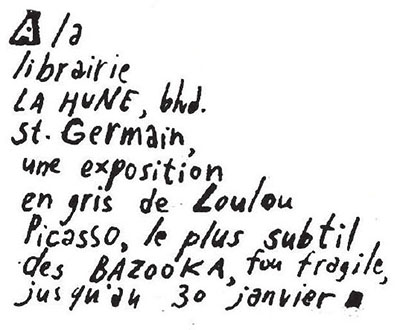 A la
librairie
LA HUNE, bhd.
st. Germain,
une exposition
en gris de Loulou
Picasso, le plus subtil
des BAZOOKA, fou fragile,
jusqu'au 30 janvier